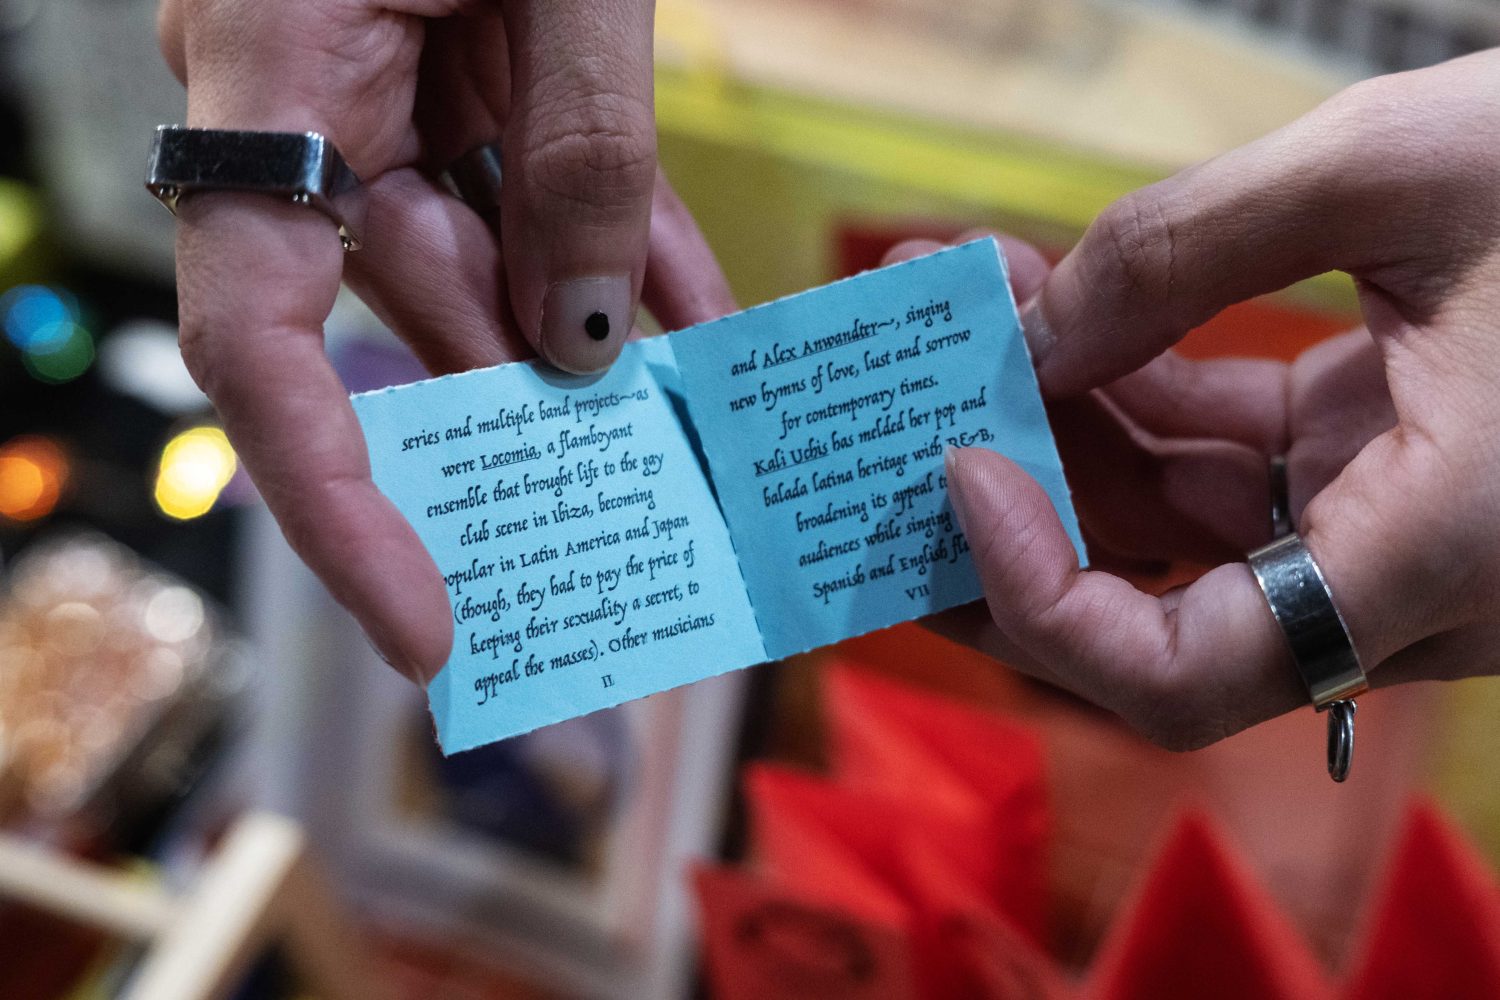 series and multiple band projects~as
were Locomia, a flamboyant
ensemble that brought life to the gay
club scene in Ibiza, becoming
popular in Latin America and Japan
(though, they had to pay the price of
keeping their sexuality a secret, to
appeal the masses). Other musicians
II
and Alex Anwandter~, singing
new hymns of love, lust and sorrow
for contemporary times.
Kali Uchis has melded her pop and
balada latina heritage with R&B,
broadening its appeal
audiences while singing
Spanish and English
VII